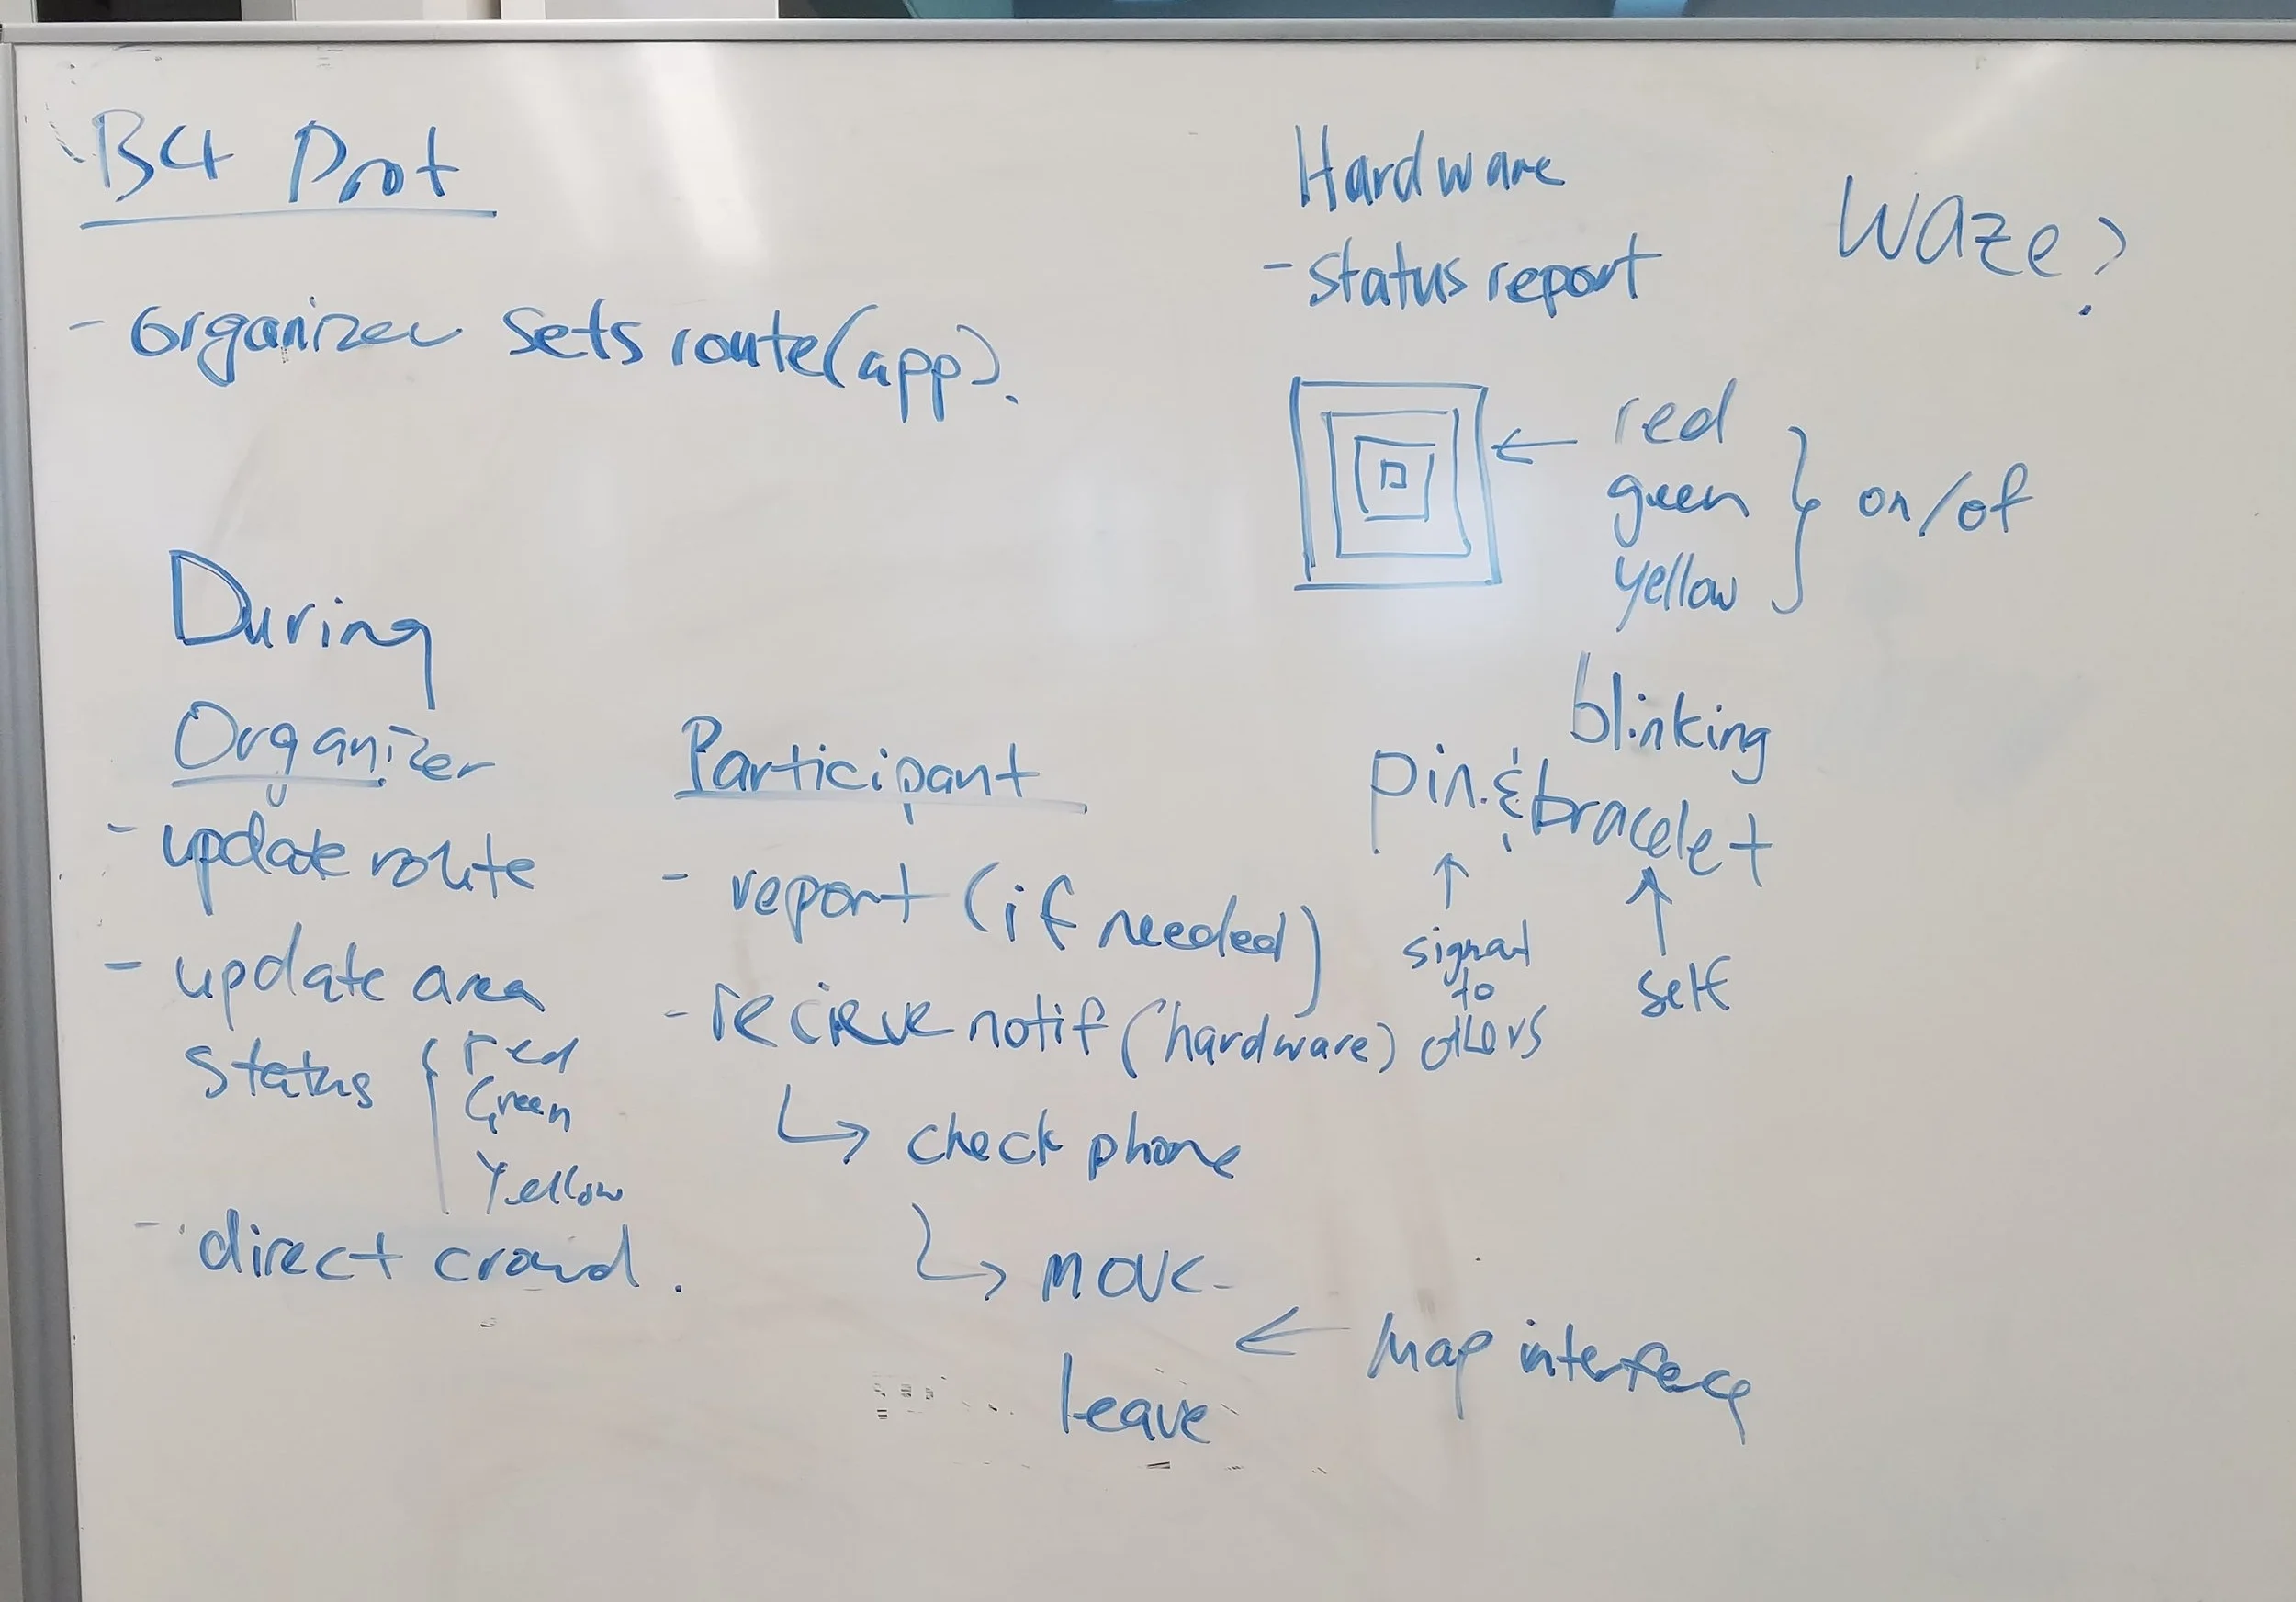 B4 Prot
- organizer sets route (app).
During
Organizer
- update route
- update area
status { red
Green
Yellow
- direct crowd.
Participant
- report (if needed)
- recieve notif (hardware)
↳ check phone
↳ move
leave
← Map interface
Hardware
- status report
← red
green
yellow
} on/of
blinking
pin & bracelet
↑ signal
to
others
↑
self
Waze?